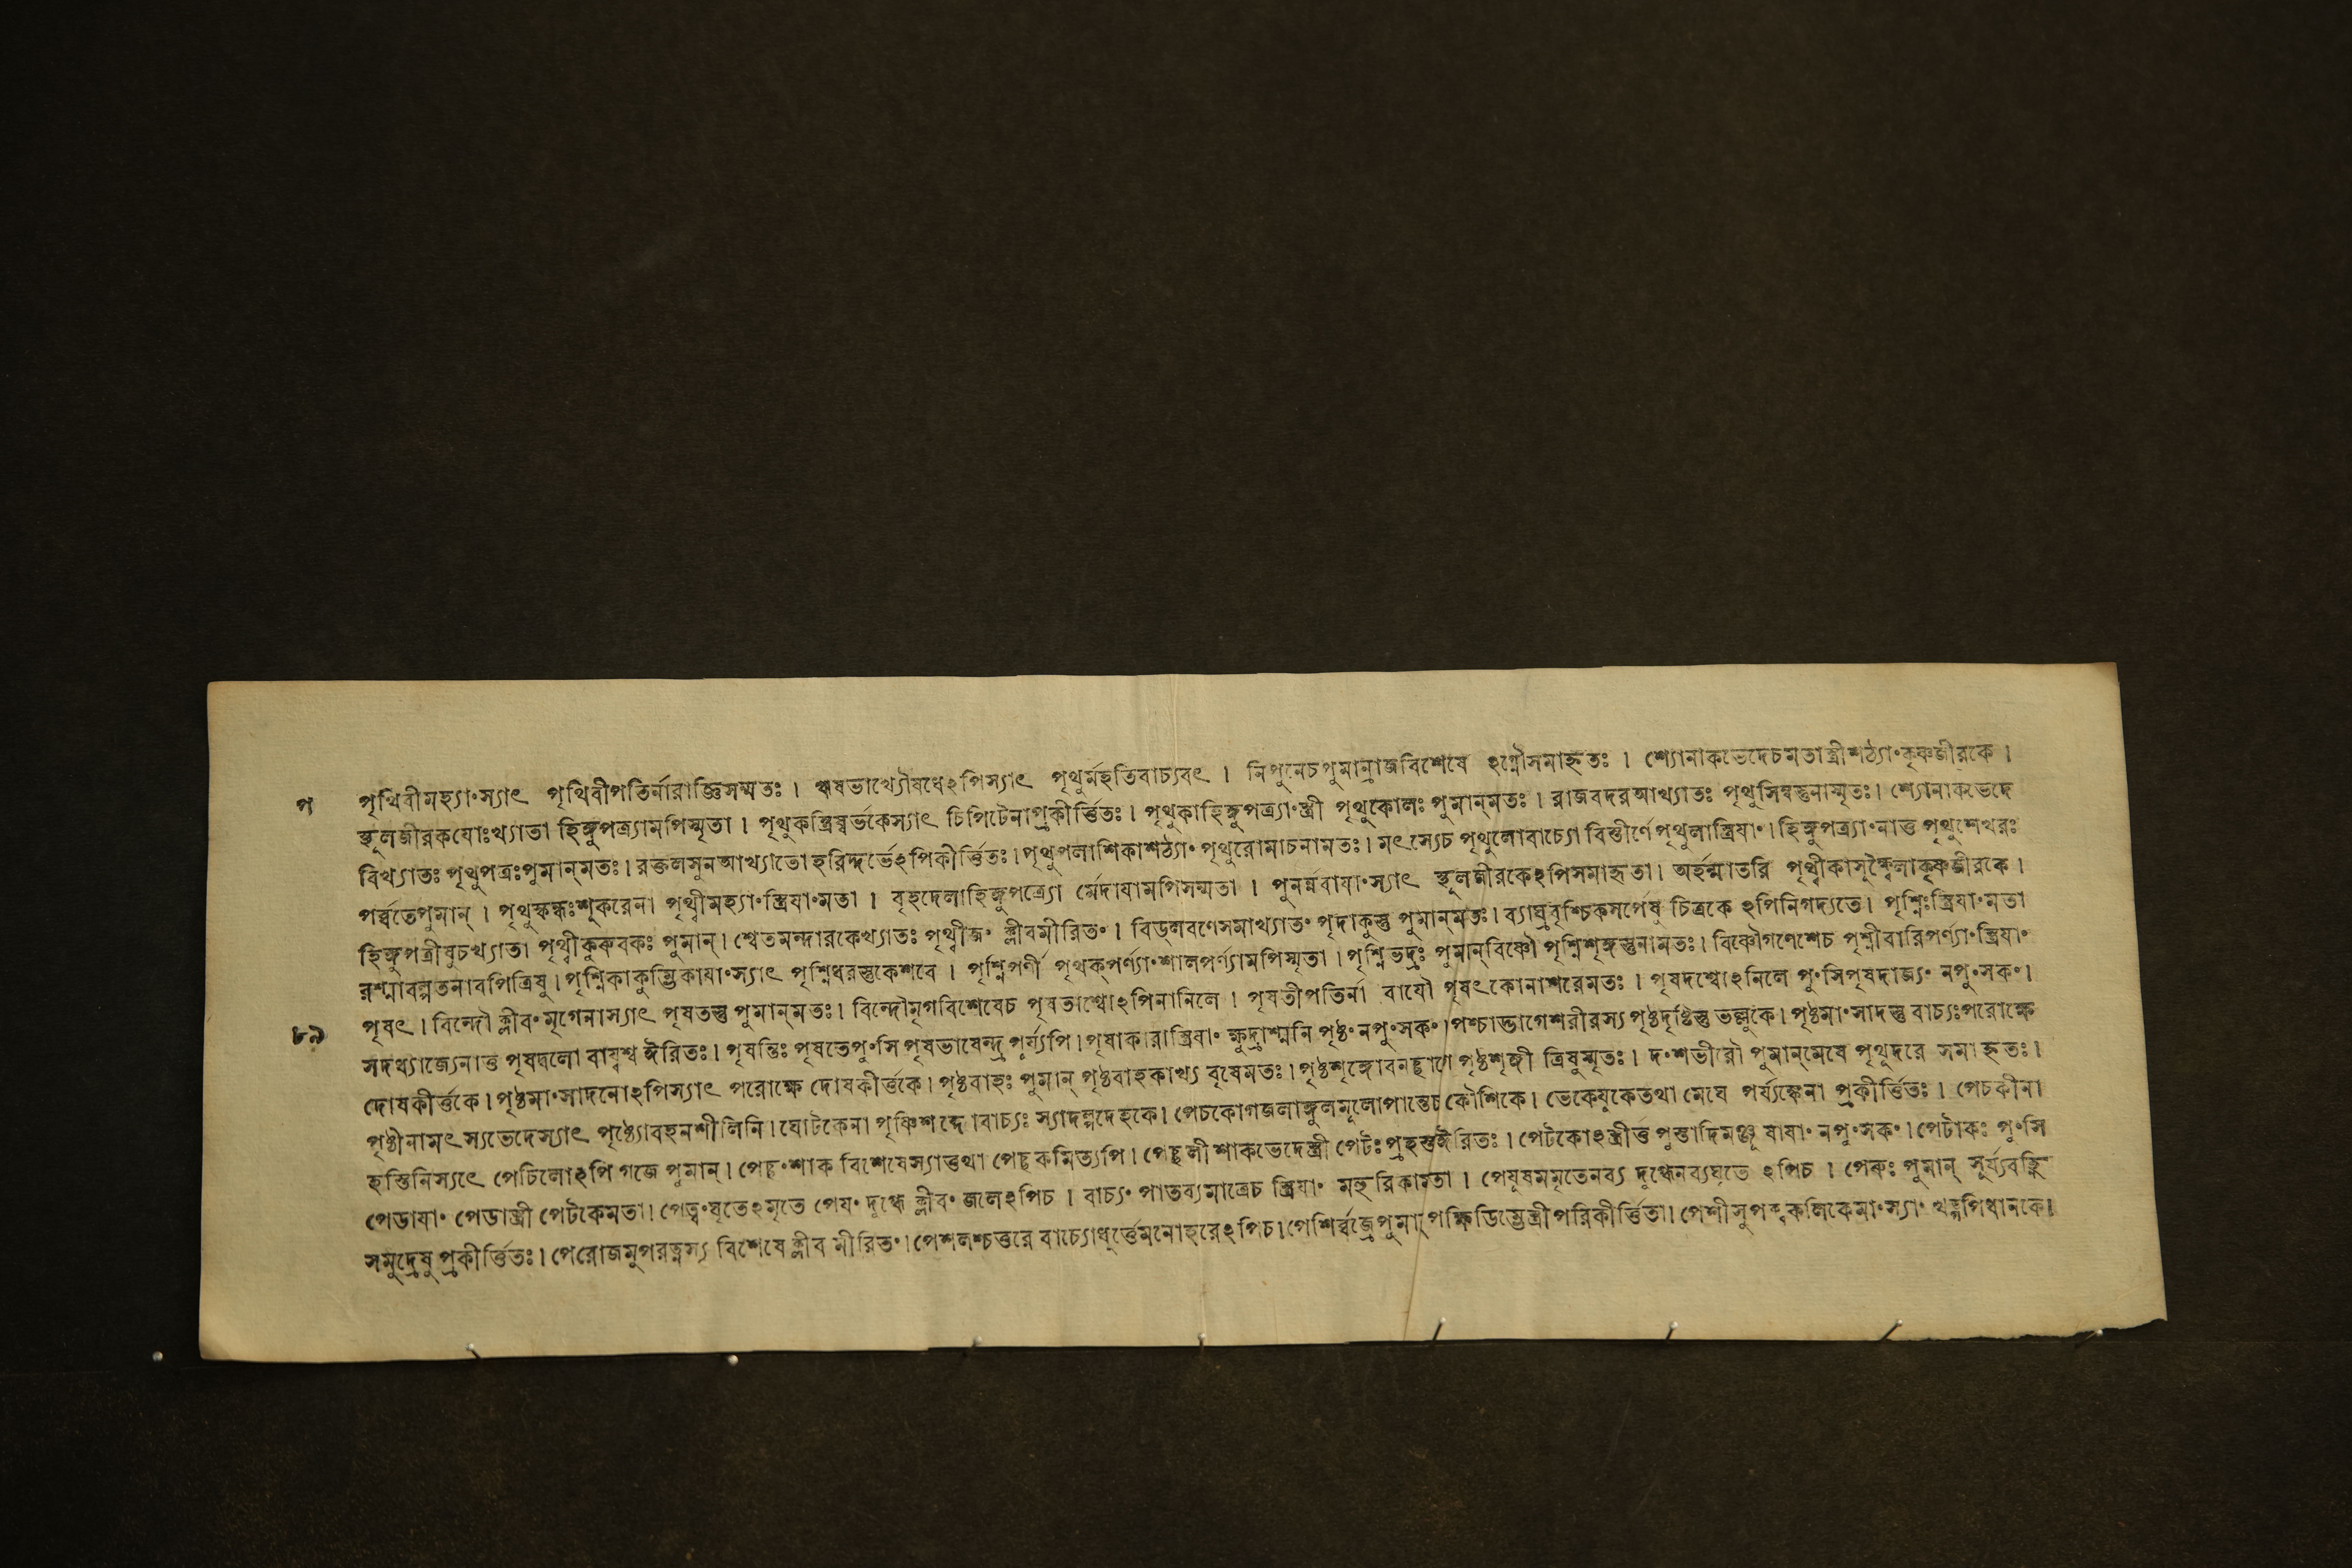 প পৃথিবীমহ্যা°স্যাৎ পৃথিবীপতির্নারাজ্ঞিসম্মতঃ । ঋষভাখ্যৌষধেঽপিস্যাৎ পৃথুর্মহতিবাচ্যবৎ । নিপুনেচপুমান্রাজবিশেষে ঽগ্নৌসমাহৃতঃ । শ্যোনাকভেদেচমতাস্ত্রীশঠ্যা°কৃষ্ণজীরকে ।
স্থূলজীরকযোঃখ্যাতা হিঙ্গুপত্র্যামপিস্মৃতা । পৃথুকস্ত্রিষ্বর্ভকেস্যাৎ চিপিটেনাপ্রকীর্ত্তিতঃ । পৃথুকাহিঙ্গুপত্র্যা°স্ত্রী পৃথুকোলঃ পুমান্মতঃ । রাজবদরআখ্যাতঃ পৃথুসিম্বস্তুনাস্মৃতঃ । শ্যোনাকভেদে
বিখ্যাতঃ পৃথুপত্রঃপুমান্মতঃ । রক্তলসুনআখ্যাতো হরিদ্দর্ভেঽপিকীর্ত্তিতঃ । পৃথুপলাশিকাশঠ্যা° পৃথুরোমাচনামতঃ । মৎস্যেচ পৃথুলোবাচ্যো বিস্তীর্ণেপৃথুলাস্ত্রিযা° । হিঙ্গুপত্র্যা°নাত্ত পৃথুশেখরঃ
পর্ব্বতেপুমান্ । পৃথুস্কন্ধঃশূকরেনা পৃথ্বীমহ্যা°স্ত্রিযা°মতা । বৃহদেলাহিঙ্গুপত্র্যো র্ম্মেদাযামপিসম্মতা । পুনর্ন্নবাযা°স্যাৎ স্থূলজীরকেঽপিসমাহৃতা । অর্হন্মাতরি পৃথ্বীকাসূক্ষ্মৈলাকৃষ্ণজীরকে ।
হিঙ্গুপত্রীষুচখ্যাতা পৃথ্বীকুরুবকঃ পুমান্ । শ্বেতমন্দারকেখ্যাতঃ পৃথ্বীজ° ক্লীবমীরিত° । বিড্লবণেসমাখ্যাত° পৃদাকুস্তু পুমান্মতঃ । ব্যাঘ্রবৃশ্চিকসর্পেষু চিত্রকে ঽপিনিগদ্যতে । পৃশ্নিঃস্ত্রিযা°মতা
রশ্মাবল্পতনাবপিত্রিষু । পৃশ্নিকাকুম্ভিকাযা°স্যাৎ পৃশ্নিধরস্তুকেশবে । পৃশ্নিপর্ণী পৃথক্পর্ণ্যা°শালপর্ণ্যামপিস্মৃতা । পৃশ্নিভদ্রঃ পুমান্বিষ্ণৌ পৃশ্নিশৃঙ্গস্তুনামতঃ । বিষ্ণৌগণেশেচ পৃশ্নীবারিপর্ণ্যা°স্ত্রিযা°
পৃষৎ । বিন্দৌ ক্লীব°মৃগেনাস্যাৎ পৃষতস্তু পুমান্মতঃ । বিন্দৌমৃগবিশেষেচ পৃষতাশ্বোঽপিনানিলে । পৃষতীপতির্না বাযৌ পৃষৎকোনাশরেমতঃ । পৃষদশ্বোঽনিলে পু°সিপৃষদাজ্য° নপু°সক° ।
৮৯ সদধ্যাজ্যেনাত্ত পৃষদ্বলো বাযুশ্ব ঈরিতঃ । পৃষন্তিঃ পৃষতেপু°সি পৃষভাষেন্দ্র পূর্য্যপি । পৃষাকারাস্ত্রিযা° ক্ষুদ্রাশ্মনি পৃষ্ঠ° নপু°সক° । পশ্চাদ্ভাগেশরীরস্য পৃষ্ঠদৃষ্টিস্তু ভল্লুকে । পৃষ্ঠমা°সাদস্তু বাচ্যঃপরোক্ষে
দোষকীর্ত্তকে । পৃষ্ঠমা°সাদনোঽপিস্যাৎ পরোক্ষে দোষকীর্ত্তকে । পৃষ্ঠবাহঃ পুমান্ পৃষ্ঠবাহকাখ্য বৃষেমতঃ । পৃষ্ঠশৃঙ্গোবনছাগে পৃষ্ঠশৃঙ্গী ত্রিষুস্মৃতঃ । দ°শভীরৌ পুমান্মেষে পৃথূদরে সমাহৃতঃ ।
পৃষ্ঠীনামৎস্যভেদেস্যাৎ পৃষ্ঠ্যোবহনশীলিনি । ঘোটকেনা পৃষ্ণিশব্দোবাচ্যঃ স্যাদল্পদেহকে । পেচকোগজলাঙ্গুলমূলোপান্তেচ কৌশিকে । ভেকেযুকেতথা মেঘে পর্য্যঙ্কেনা প্রকীর্ত্তিতঃ । পেচকীনা
হস্তিনিস্যৎ পেচিলোঽপি গজে পুমান্ । পেচু°শাক বিশেষেস্যাত্তথা পেচুকমিত্যপি । পেচুলী শাকভেদেস্ত্রী পেটঃ প্রহস্তঈরিতঃ । পেটকোঽস্ত্রীত্ত পুস্তাদিমঞ্জূষাযা° নপু°সক° । পেটাকঃ পু°সি
পেডাযা° পেডাস্ত্রী পেটকেমতা । পেত্ব°ঘৃতেঽমৃতে পেয° দুগ্ধে ক্লীব° জলেঽপিচ । বাচ্য° পাতব্যমাত্রেচ স্ত্রিযা° মহুরিকামতা । পেযূষমমৃতেনব্য দুগ্ধেনব্যঘৃতে ঽপিচ । পেরুঃ পুমান্ সূর্য্যবহ্নি
সমুদ্রেষু প্রকীর্ত্তিতঃ । পেরোজমুপরত্নস্য বিশেষে ক্লীব মীরিত° । পেশলশ্চত্তরে বাচ্যোধূর্ত্তেমনোহরেঽপিচ । পেশির্ব্বজ্রেপুমান্ পক্ষিডিম্ভেস্ত্রীপরিকীর্ত্তিতা । পেশীসুপক্বকলিকেমা°স্যা° খড্গপিধানকে ।